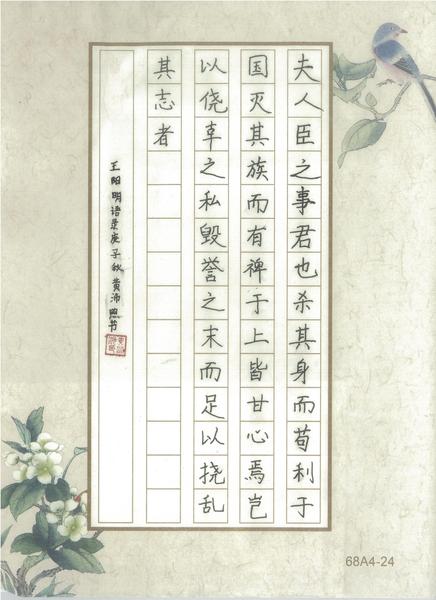 夫人臣之事君也杀其身而苟利于
国灭其族而有裨于上皆甘心焉岂
以侥幸之私毁誉之末而足以挠乱
其志者
王阳明语录庚子秋黄沛
68A4-24